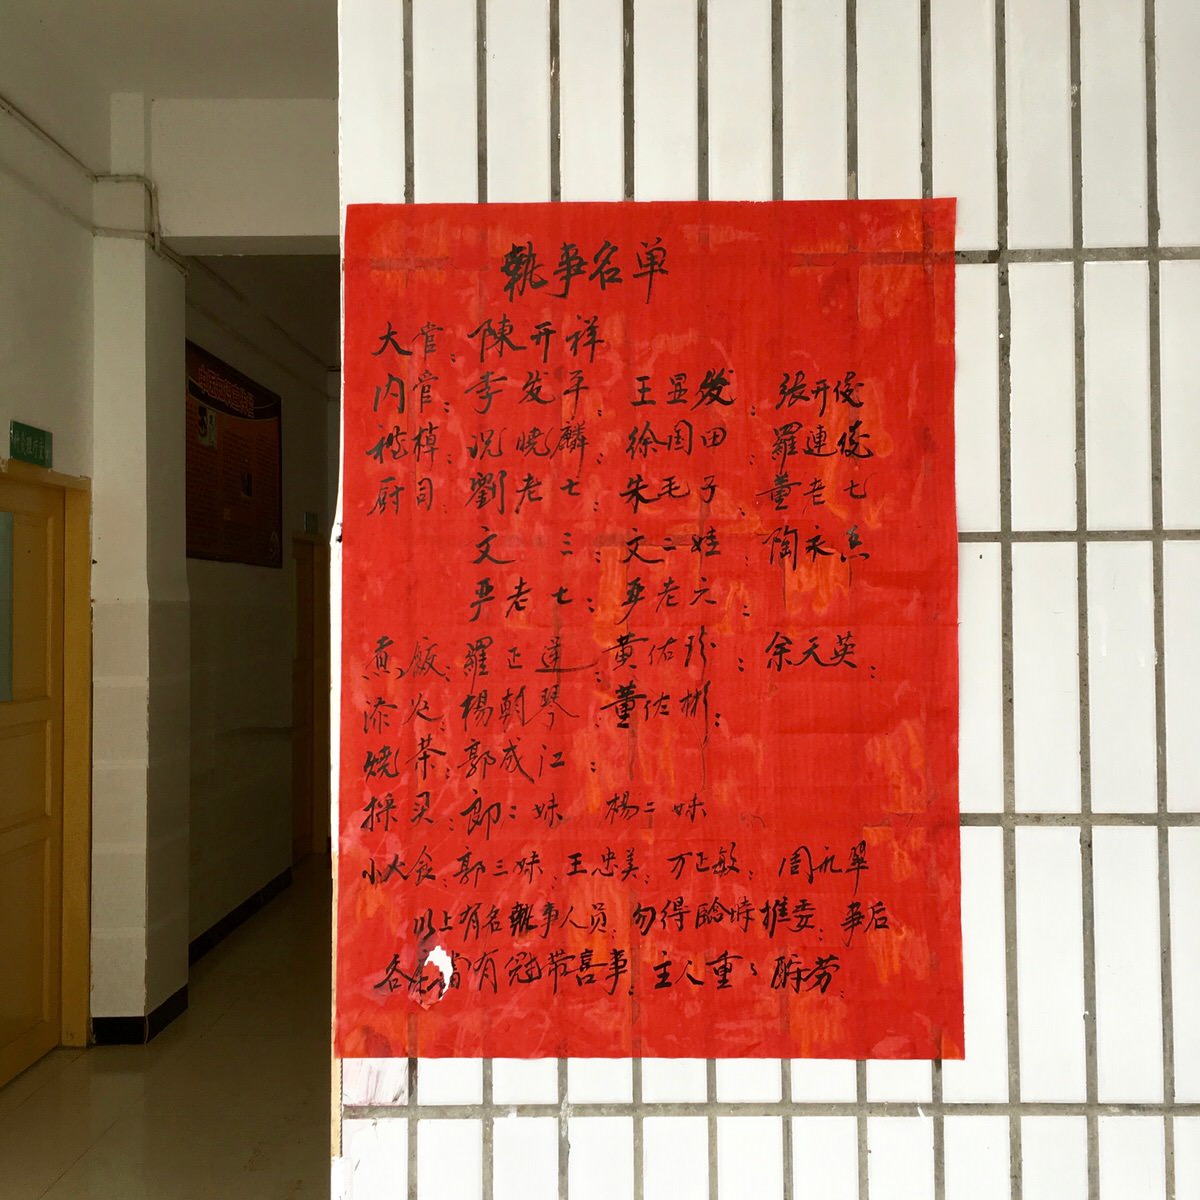 執事名单
大管：陳开祥
内管：李发平：王显发：張开俊
襍棹：况曉麟：徐国田：羅連俊
厨司：劉老七：朱毛子：董老七
文三：文二娃：陶永
严老七：严老六：
煮飯：羅正蓮：黄佑珍：余天英：
添火：楊朝琴：董佐彬：
燒茶：郭成江：
採买：郎二妹 楊二妹
小大食：郭三妹：王忠美：万正敏：周九翠
以上有名執事人员：勿得臨時推委：事后
各 尚有冠带喜事：主人重々酧劳：